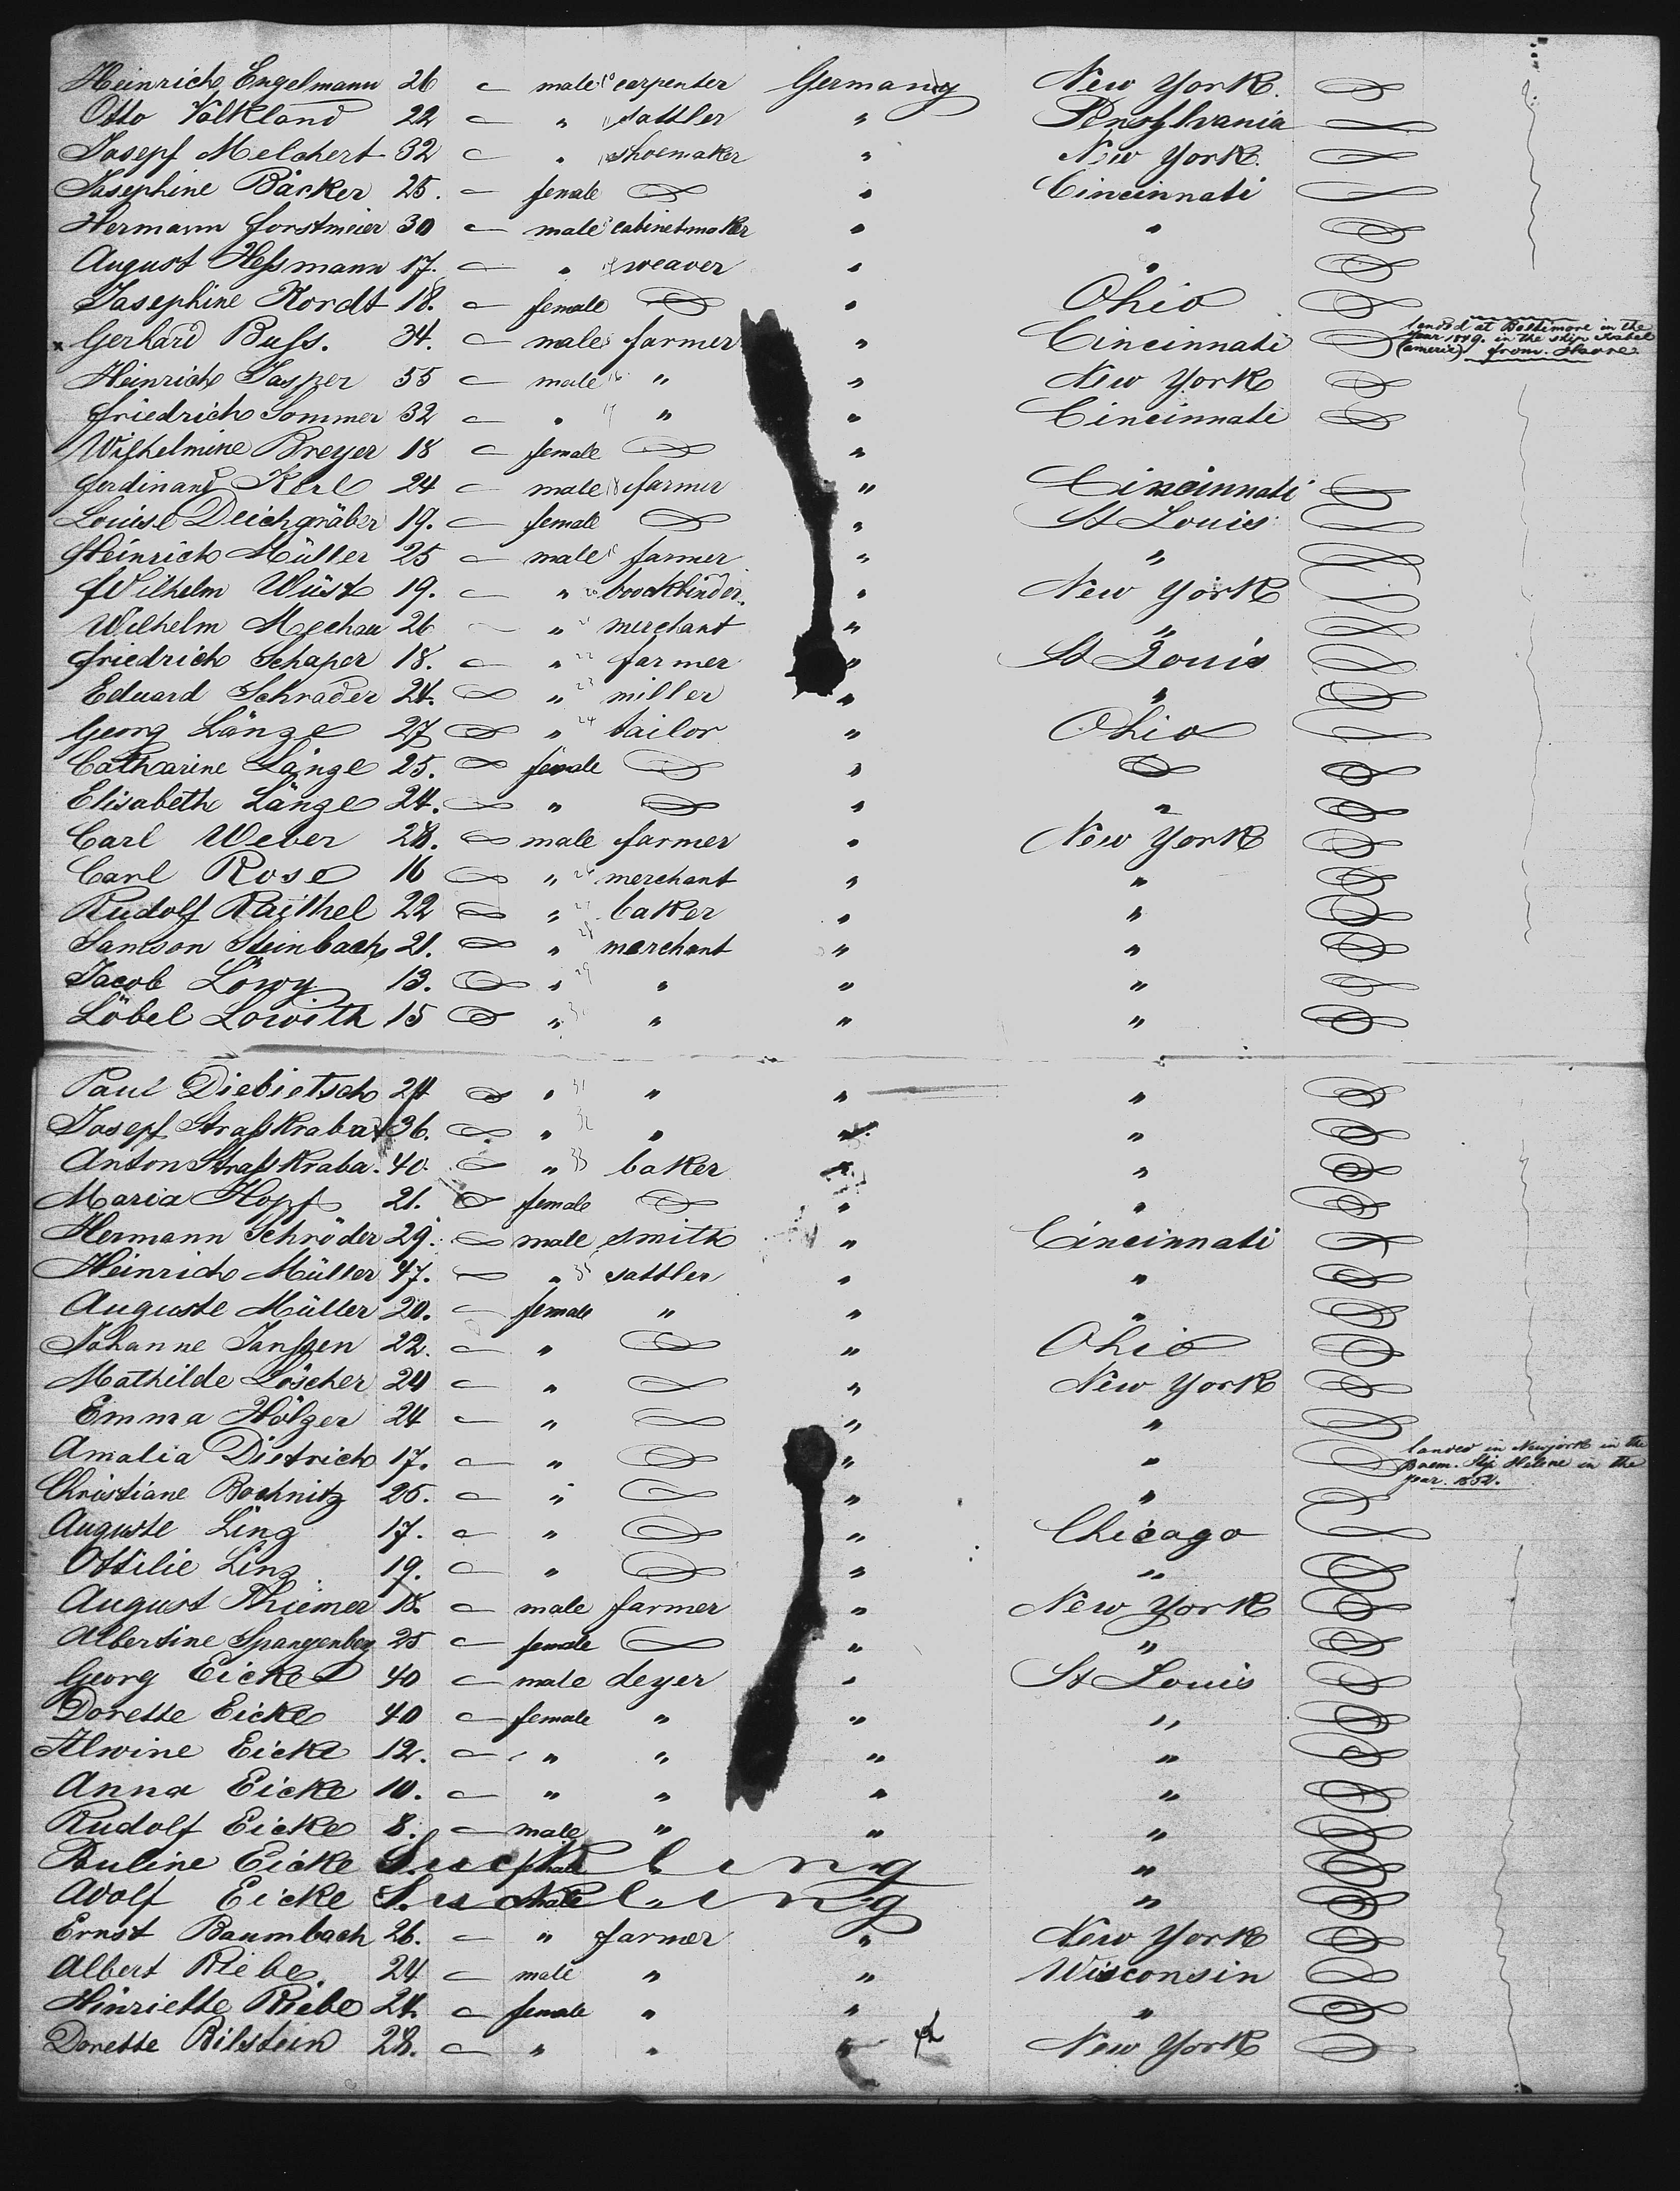 Heinrich Engelmann 26 male carpenter Germany New York.
Otto Volkland 22 " sattler " Pensylvania
Josepf Melchert 32 " shoemaker " New York.
Josephine Bäcker 25. female " Cincinnati
Hermann Forstmeier 30 male cabinetmaker " "
August Heßmann 17. " weaver " "
Josephine Kordt 18. female " Ohio
x Gerhard Buss. 34. male farmer " Cincinnati landed at Baltimore in the year 1849. in the ship Isabel (americ) from. Havre.
Heinrich Jasper 55 male " " New York
Friedrich Sommer 32 " " " Cincinnati
Wilhelmine Breyer 18 female "
Ferdinand Kerl 24 male farmer " Cincinnati
Louise Deichgräber 19. female " St Louis
Heinrich Müller 25 male farmer " "
Wilhelm Wüst 19. " boockbinder. " New York
Wilhelm Mechau 26 " merchant " "
Friedrich Schaper 18. " farmer " St Louis
Eduard Schrader 24. " miller " "
Georg Länge 27 " tailor " Ohio
Catharine Länge 25. female "
Elisabeth Länge 24. " " "
Carl Weber 28. male farmer " New York
Carl Rose 16 " merchant " "
Rudolf Raithel 22 " baker " "
Samson Steinbach 21. " merchant " "
Jacob Löwy 13. " " " "
Löbel Lowith 15 " " " "
Paul Diebietsch 24 " " " "
Josepf Straßkraba 36. " " " "
Anton Straßkraba. 40. " baker " "
Maria Hopf 21. female " "
Hermann Schröder 29. male smith " Cincinnati
Heinrich Müller 47. " sattler " "
Auguste Müller 20. female " " "
Johanne Janßen 22. " " Ohio
Mathilde Löscher 24 " " New York
Emma Hölzer 24 " " "
Amalia Dietrich 17. " " " landed in Newjork in the Brem. Ship Helene in the year. 1852.
Christiane Bochnitz 26. " " "
Auguste Ling 17. " " Chicago
Ottilie Ling 19. " " "
August Thiemer 18. male farmer " New York
Albertine Spangenberg 25 female " "
Georg Eicke 40 male deyer " St Louis
Dorette Eicke 40 female " " "
Alwine Eicke 12. " " " "
Anna Eicke 10. " " " "
Rudolf Eicke 8. male " " "
Pauline Eicke Suckling female "
Adolf Eicke Suckling male "
Ernst Baumbach 26. " farmer " New York
Albert Riebe 24 male " " Wisconsin
Hinriette Riebe 24. female " " "
Dorette Bilstein 28. " " " New York